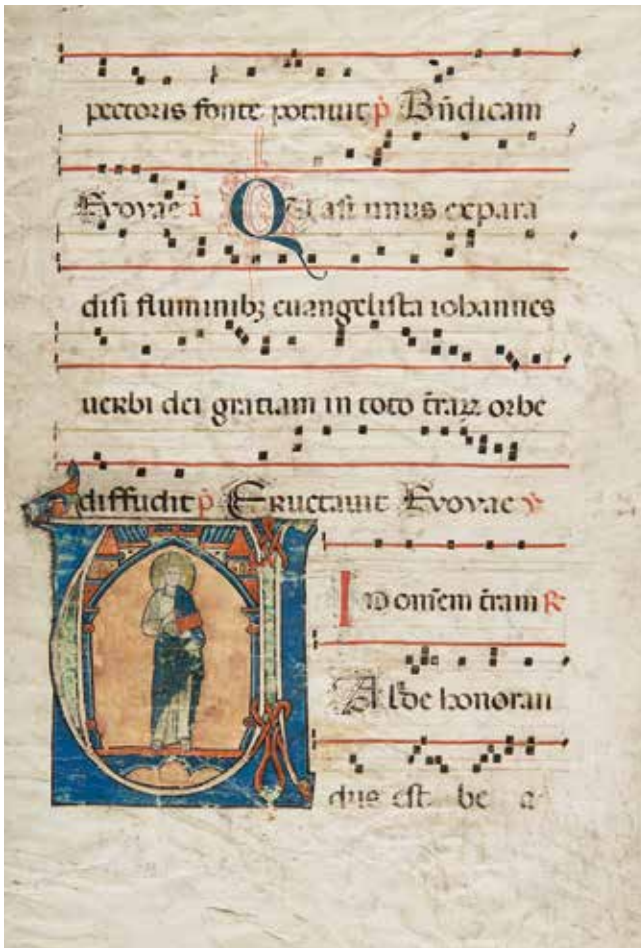 pectoris fonte potauit p̄ Bn̄dicam
Evovae a̅ Quasi unus expara
disi fluminibꝫ euangelista iohannes
uerbi dei gratiam in toto t̄raꝝ orbe
diffudit p̄ Eructauit Evovae ℣
In om̄em t̄ram ℟
Valde honoran
dus est be a